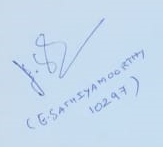 (E.SATHIYAMOORTHY
10297)